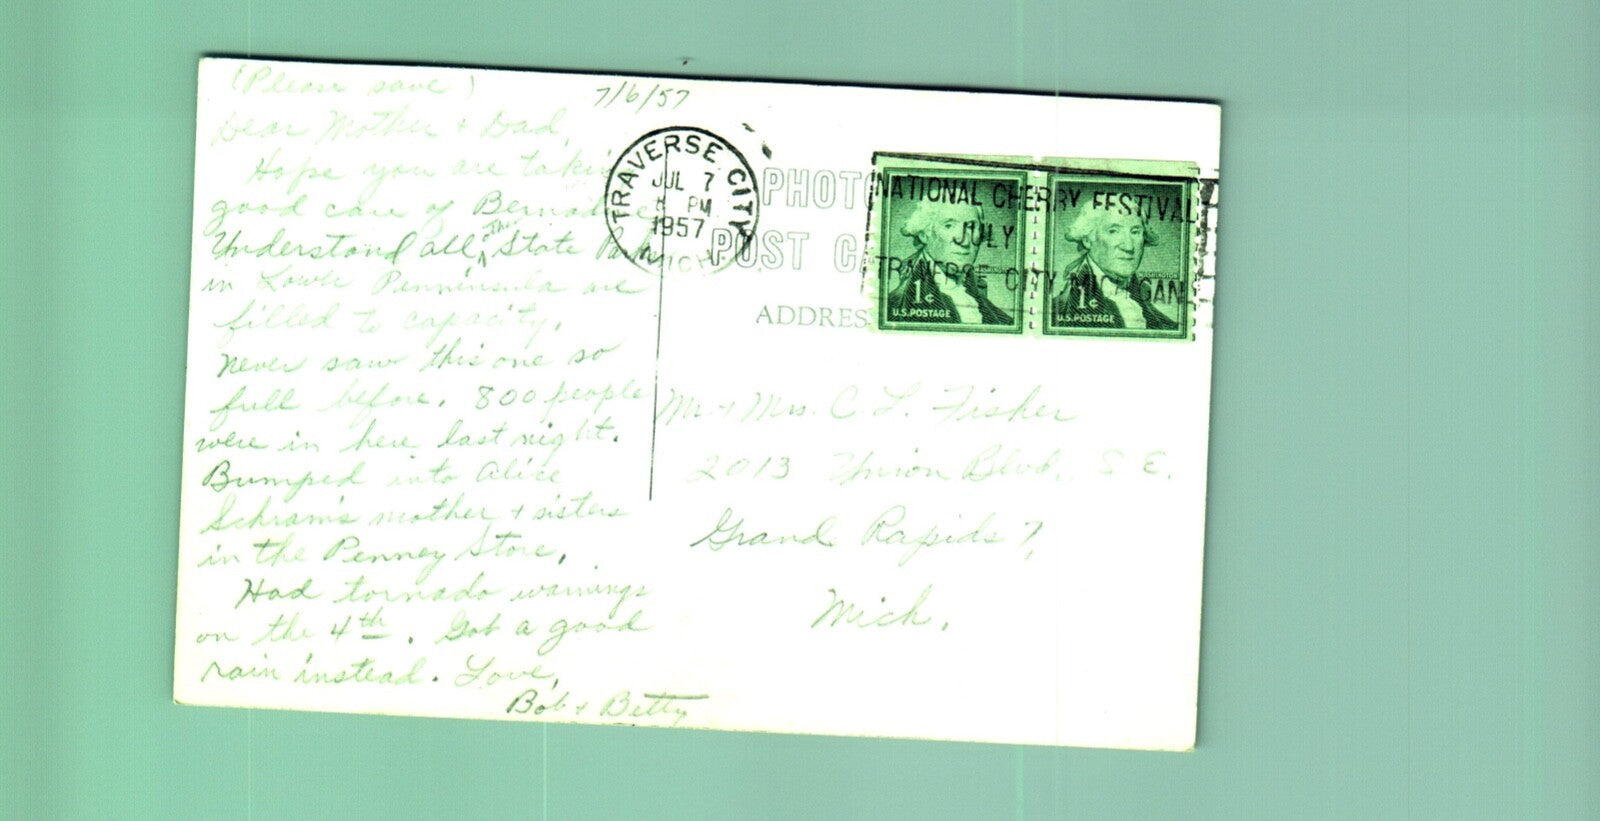 (Please save)
7/6/57
Dear Mother + Dad,
Hope you are taking
good care of
Understand all the State Parks
in Lower Penninsula are
filled to capacity.
Never saw this one so
full before. 800 people
were in here last night.
Bumped into Alice
Schram's mother + sisters
in the Penney Store.
Had tornado warnings
on the 4th. Got a good
rain instead. Love,
Bob + Betty
TRAVERSE CITY
JUL 7
PM
1957
MICH
PHOTO
POST C
ADDRES
NATIONAL CHERRY FESTIVAL
JULY
TRAVERSE CITY, MICHIGAN
1¢
U.S. POSTAGE
WASHINGTON
1¢
U.S. POSTAGE
WASHINGTON
Mr + Mrs. C L. Fisher
2013 Union Blvd., S E.
Grand Rapids 7,
Mich.